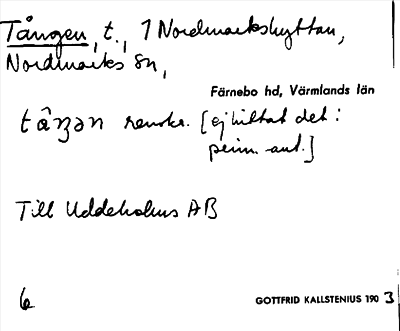 Tången, t., 1 Nordmarkshyttan,
Nordmarks sn,
Färnebo hd, Värmlands län
tåŋən renskr. [ej hittat det:
prim. ant.]
Till Uddeholms AB
6
GOTTFRID KALLSTENIUS 190 3